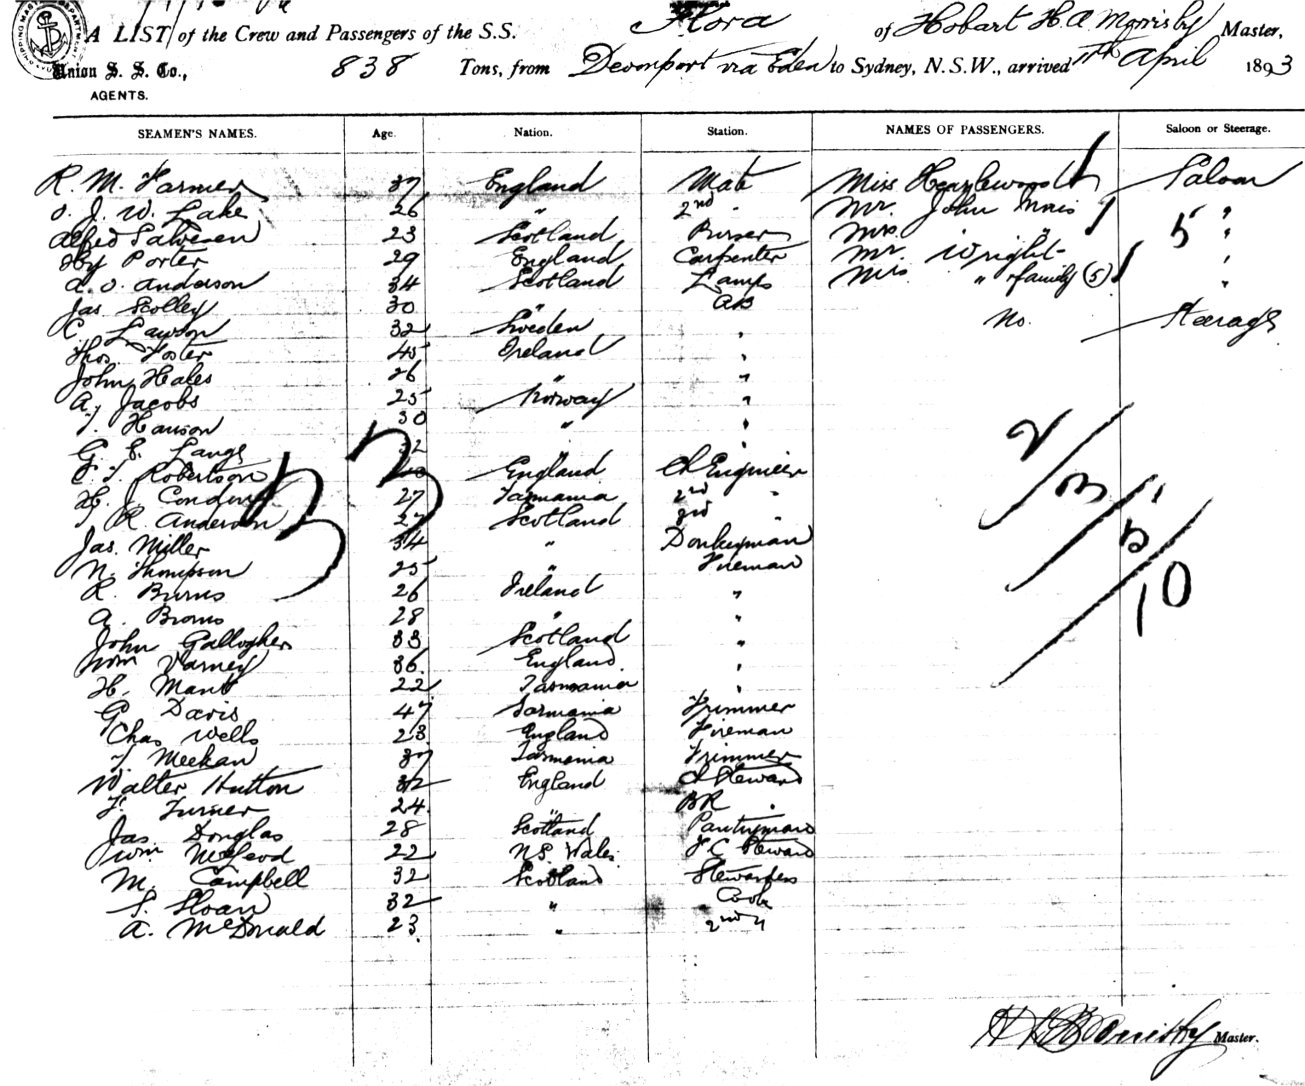 A LIST of the Crew and Passengers of the S.S. Flora of Hobart H. A. Morrisby Master,
Union S. S. Co., 838 Tons, from Devonport via Eden to Sydney, N.S.W., arrived 11th April 1893
AGENTS.
SEAMEN'S NAMES. Age. Nation. Station. NAMES OF PASSENGERS. Saloon or Steerage.
R. M. Farmer 37 England Mate Miss Heazlewood Saloon
J. W. Lake 26 " 2nd " Mr. John "
Alfred Salvesen 23 Scotland Purser Mrs " 5 "
Hy Porter 29 England Carpenter Mr. Wright "
A. O. Anderson 34 Scotland Lamps Mrs " family (5) "
Jas Scolley 30 " AB
C. Lawson 32 Sweden " No. Steerage
Thos. Foster 45 Ireland "
John Hales 26 " "
A. Jacobs 25 Norway "
T. Hanson 30 " "
G. E. Lange 32 " "
Robertson England Ch Engineer
H. J. 27 Tasmania 2nd "
R. Anderson 27 Scotland 3rd "
Jas. Miller 34 " Donkeyman
N. Thompson 25 " Fireman
R. Burns 26 Ireland "
A. Brown 28 " "
John Gallogher 33 Scotland "
Wm Varney 36 England "
H. Mant 22 Tasmania "
G. Davis 47 Tasmania Trimmer
Chas Wells 23 England Fireman
T. Meekan 37 Tasmania Trimmer
Walter Hutton 32 England Ch Steward
F. Turner 24 " BR "
Jas. Douglas 28 Scotland Pantryman
Wm McLeod 22 N S. Wales F C Steward
M. Campbell 32 Scotland Stewardess
S. Sloan 32 " Cook
A. McDonald 23 " 2nd "
33
2/3/5/10
H A Morrisby Master.